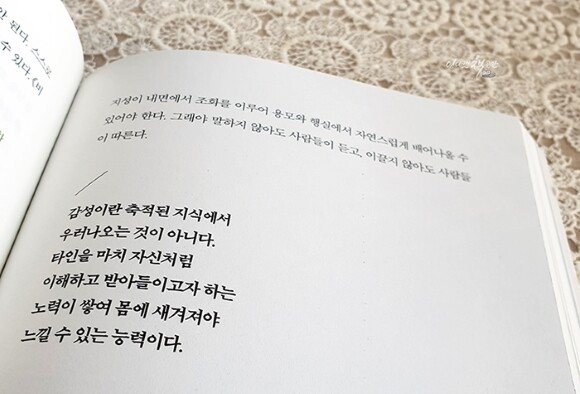 안 된다. 스스로
수 있다. 《비
지성이 내면에서 조화를 이루어 용모와 행실에서 자연스럽게 배어나올 수
있어야 한다. 그래야 말하지 않아도 사람들이 듣고, 이끌지 않아도 사람들
이 따른다.
감성이란 축적된 지식에서
우러나오는 것이 아니다.
타인을 마치 자신처럼
이해하고 받아들이고자 하는
노력이 쌓여 몸에 새겨져야
느낄 수 있는 능력이다.